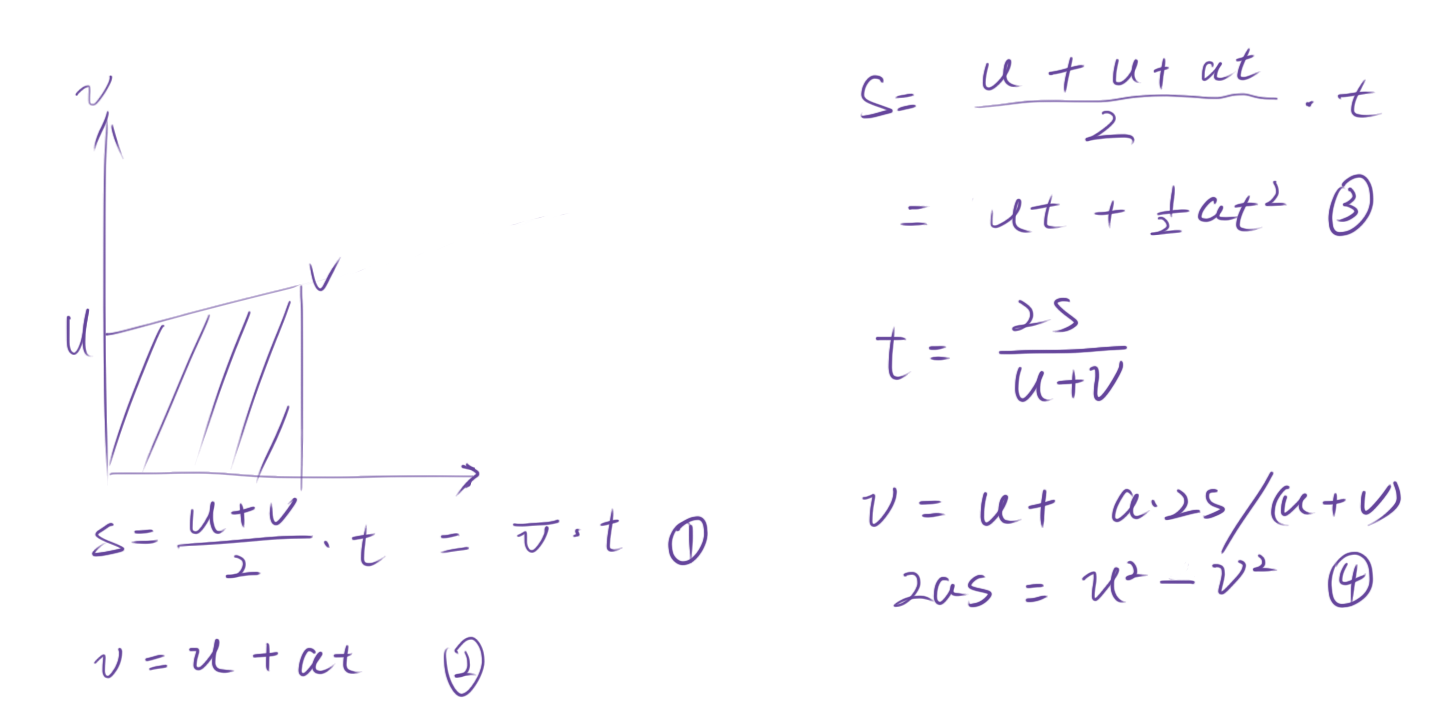 v
u
v
s = (u+v)/2 · t = v̅ · t ①
v = u + at ②
S = (u + u + at)/2 · t
= ut + ½at² ③
t = 2s/(u+v)
v = u + a·2s/(u+v)
2as = u² − v² ④